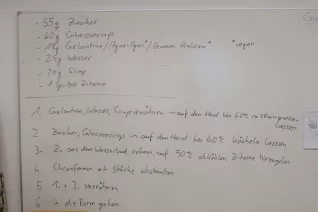 - 55g Zucker
- 60g Glucosesirup
- 10g Gelantine/Agar-Agar*/Gummi Arabicum* *vegan
- 25g Wasser
- 20g Sirup
- 1 Spritzer Zitrone
1. Gelantine, Wasser, Sirup verrühren → auf den Herd bei 60°C zergehen lassen
2 Zucker, Glucosesirup → auf den Herd bei 60% köcheln lassen
3. 2. aus dem Wasserbad nehmen, auf 50% abkühlen, Zitrone hinzugeben
4 Silikonformen mit Stärke abstauben
5 1. + 3. verrühren
6 in die Form geben